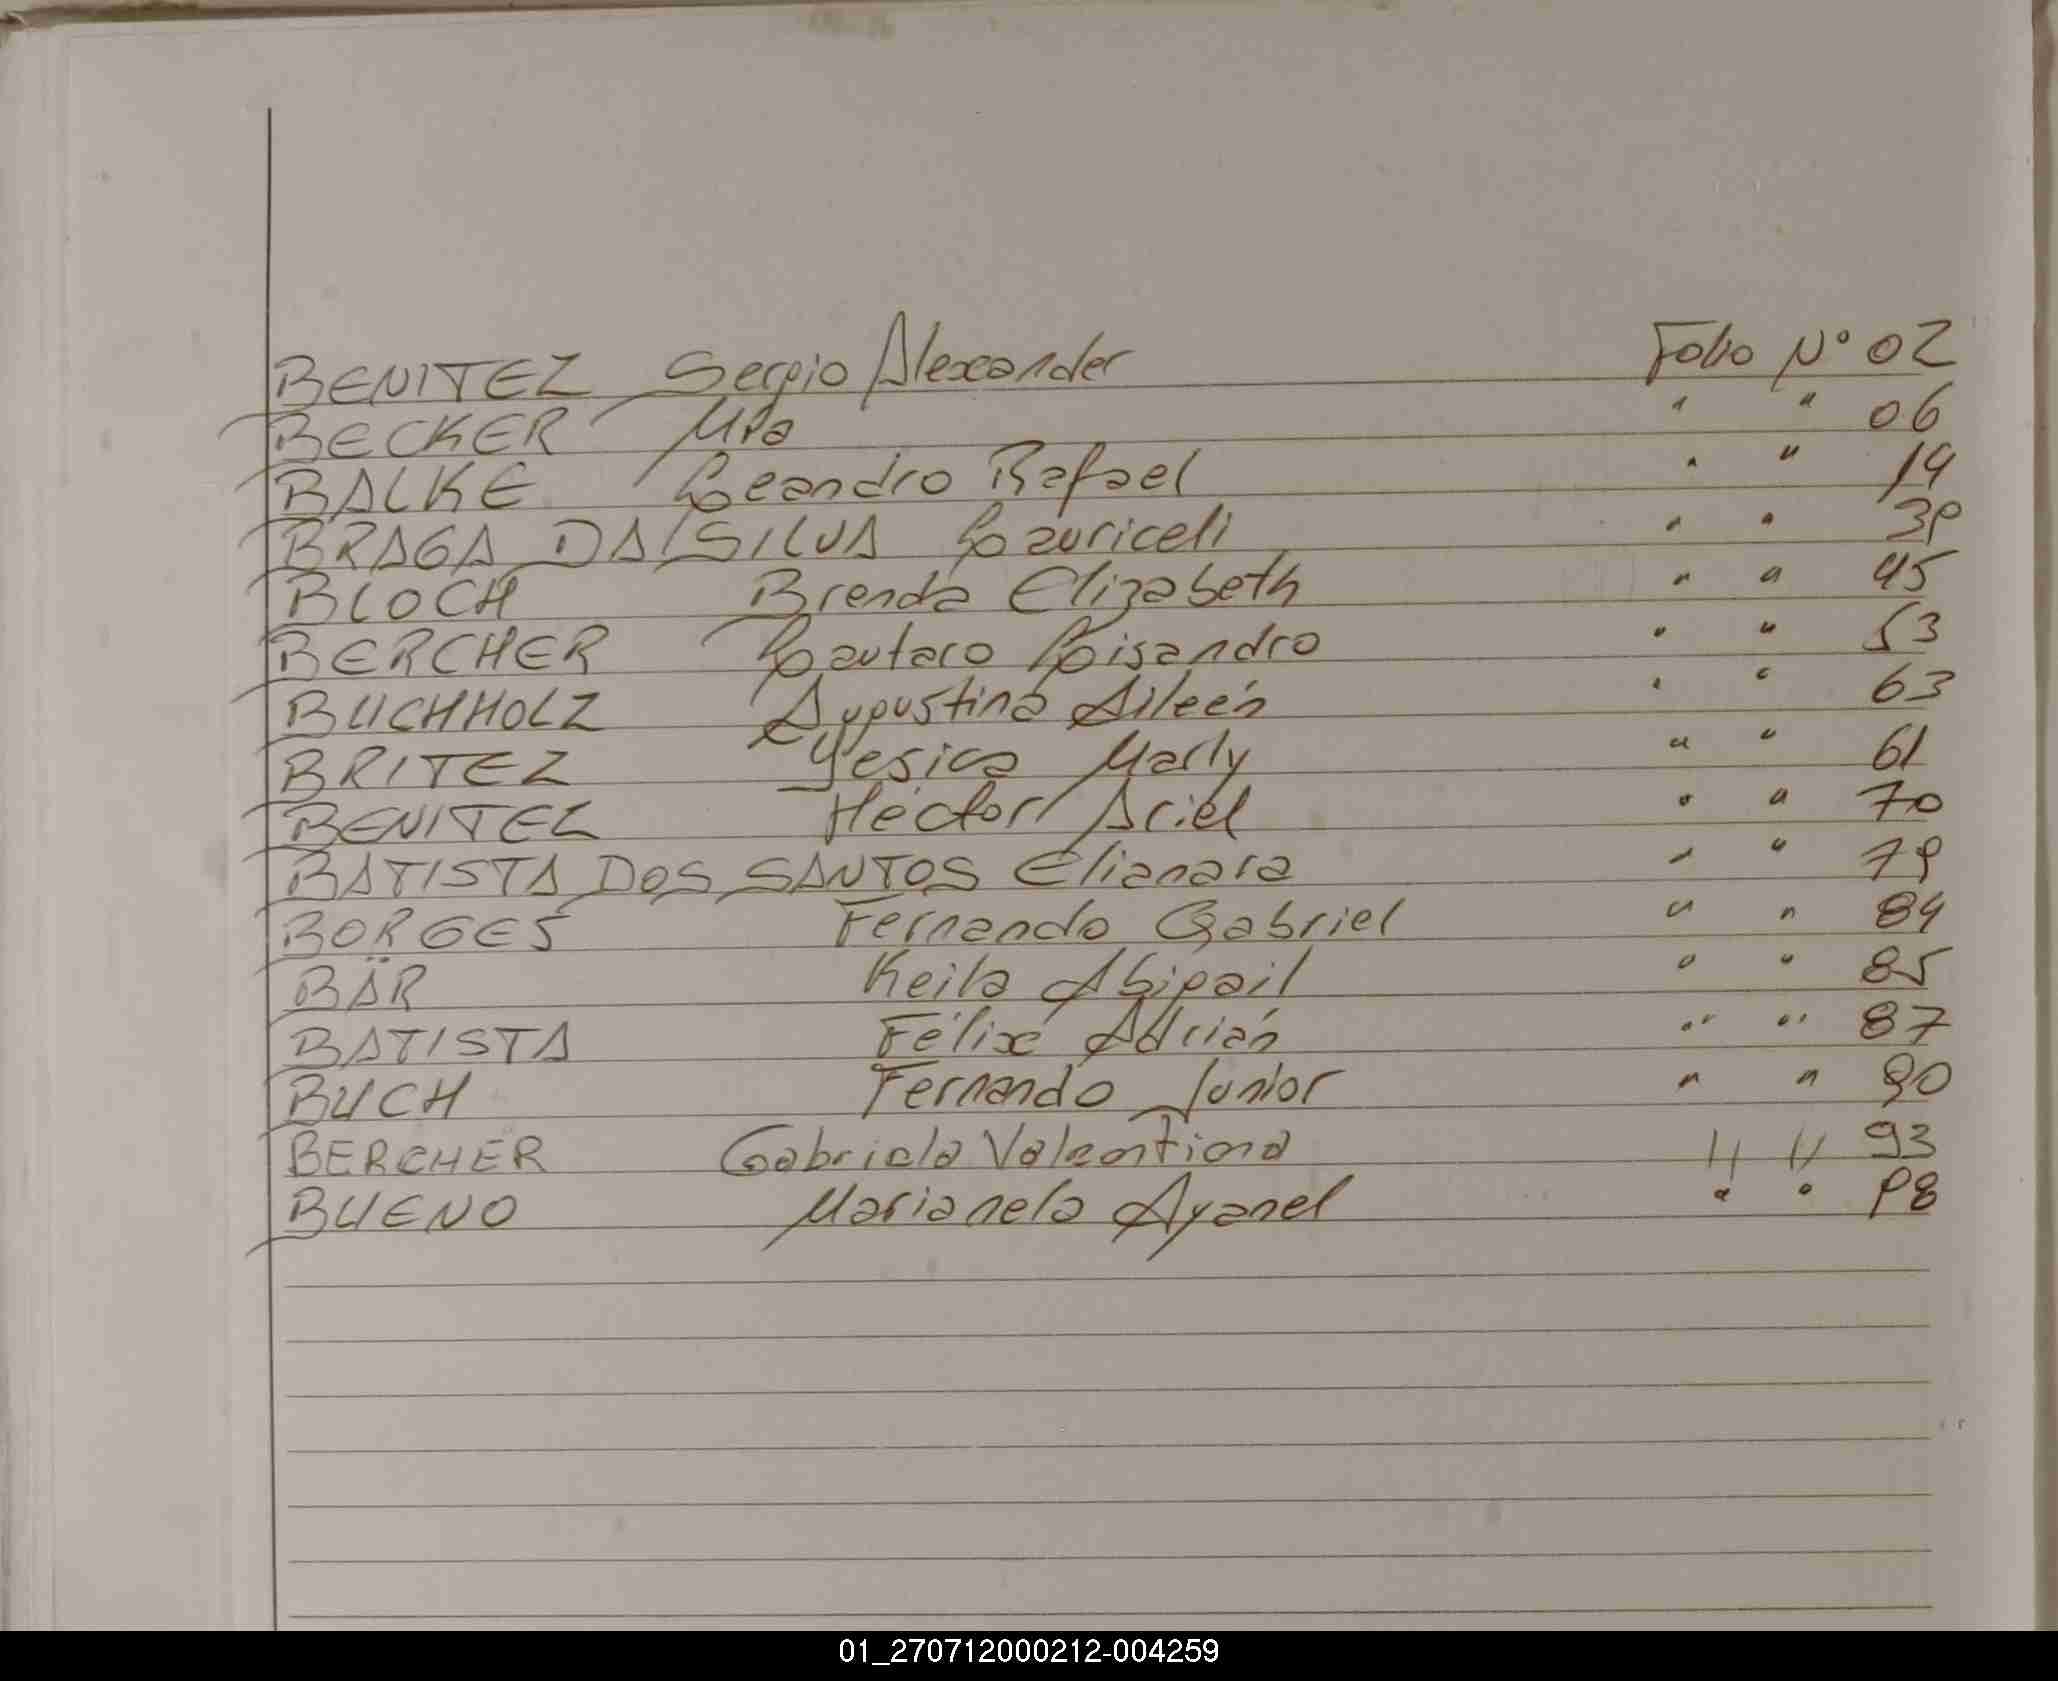 BENITEZ Sergio Alexander Folio N° 02
BECKER " " 06
BALKE Leandro Rafael " " 14
BRAGA DA SILVA Lauriceli " " 39
BLOCH Brenda Elizabeth " " 45
BERCHER Lautaro Lisandro " " 53
BUCHHOLZ Agustina Aileén " " 63
BRITEZ Yesica Marly " " 61
BENITEZ Héctor Ariel " " 70
BATISTA DOS SANTOS Elianara " " 79
BORGES Fernando Gabriel " " 84
BÄR Keila Abigail " " 85
BATISTA Félix Adrián " " 87
BUCH Fernando Junior " " 90
BERCHER Gabriela Valentina " " 93
BUENO Marianela Ayanel " " 98
01_270712000212-004259